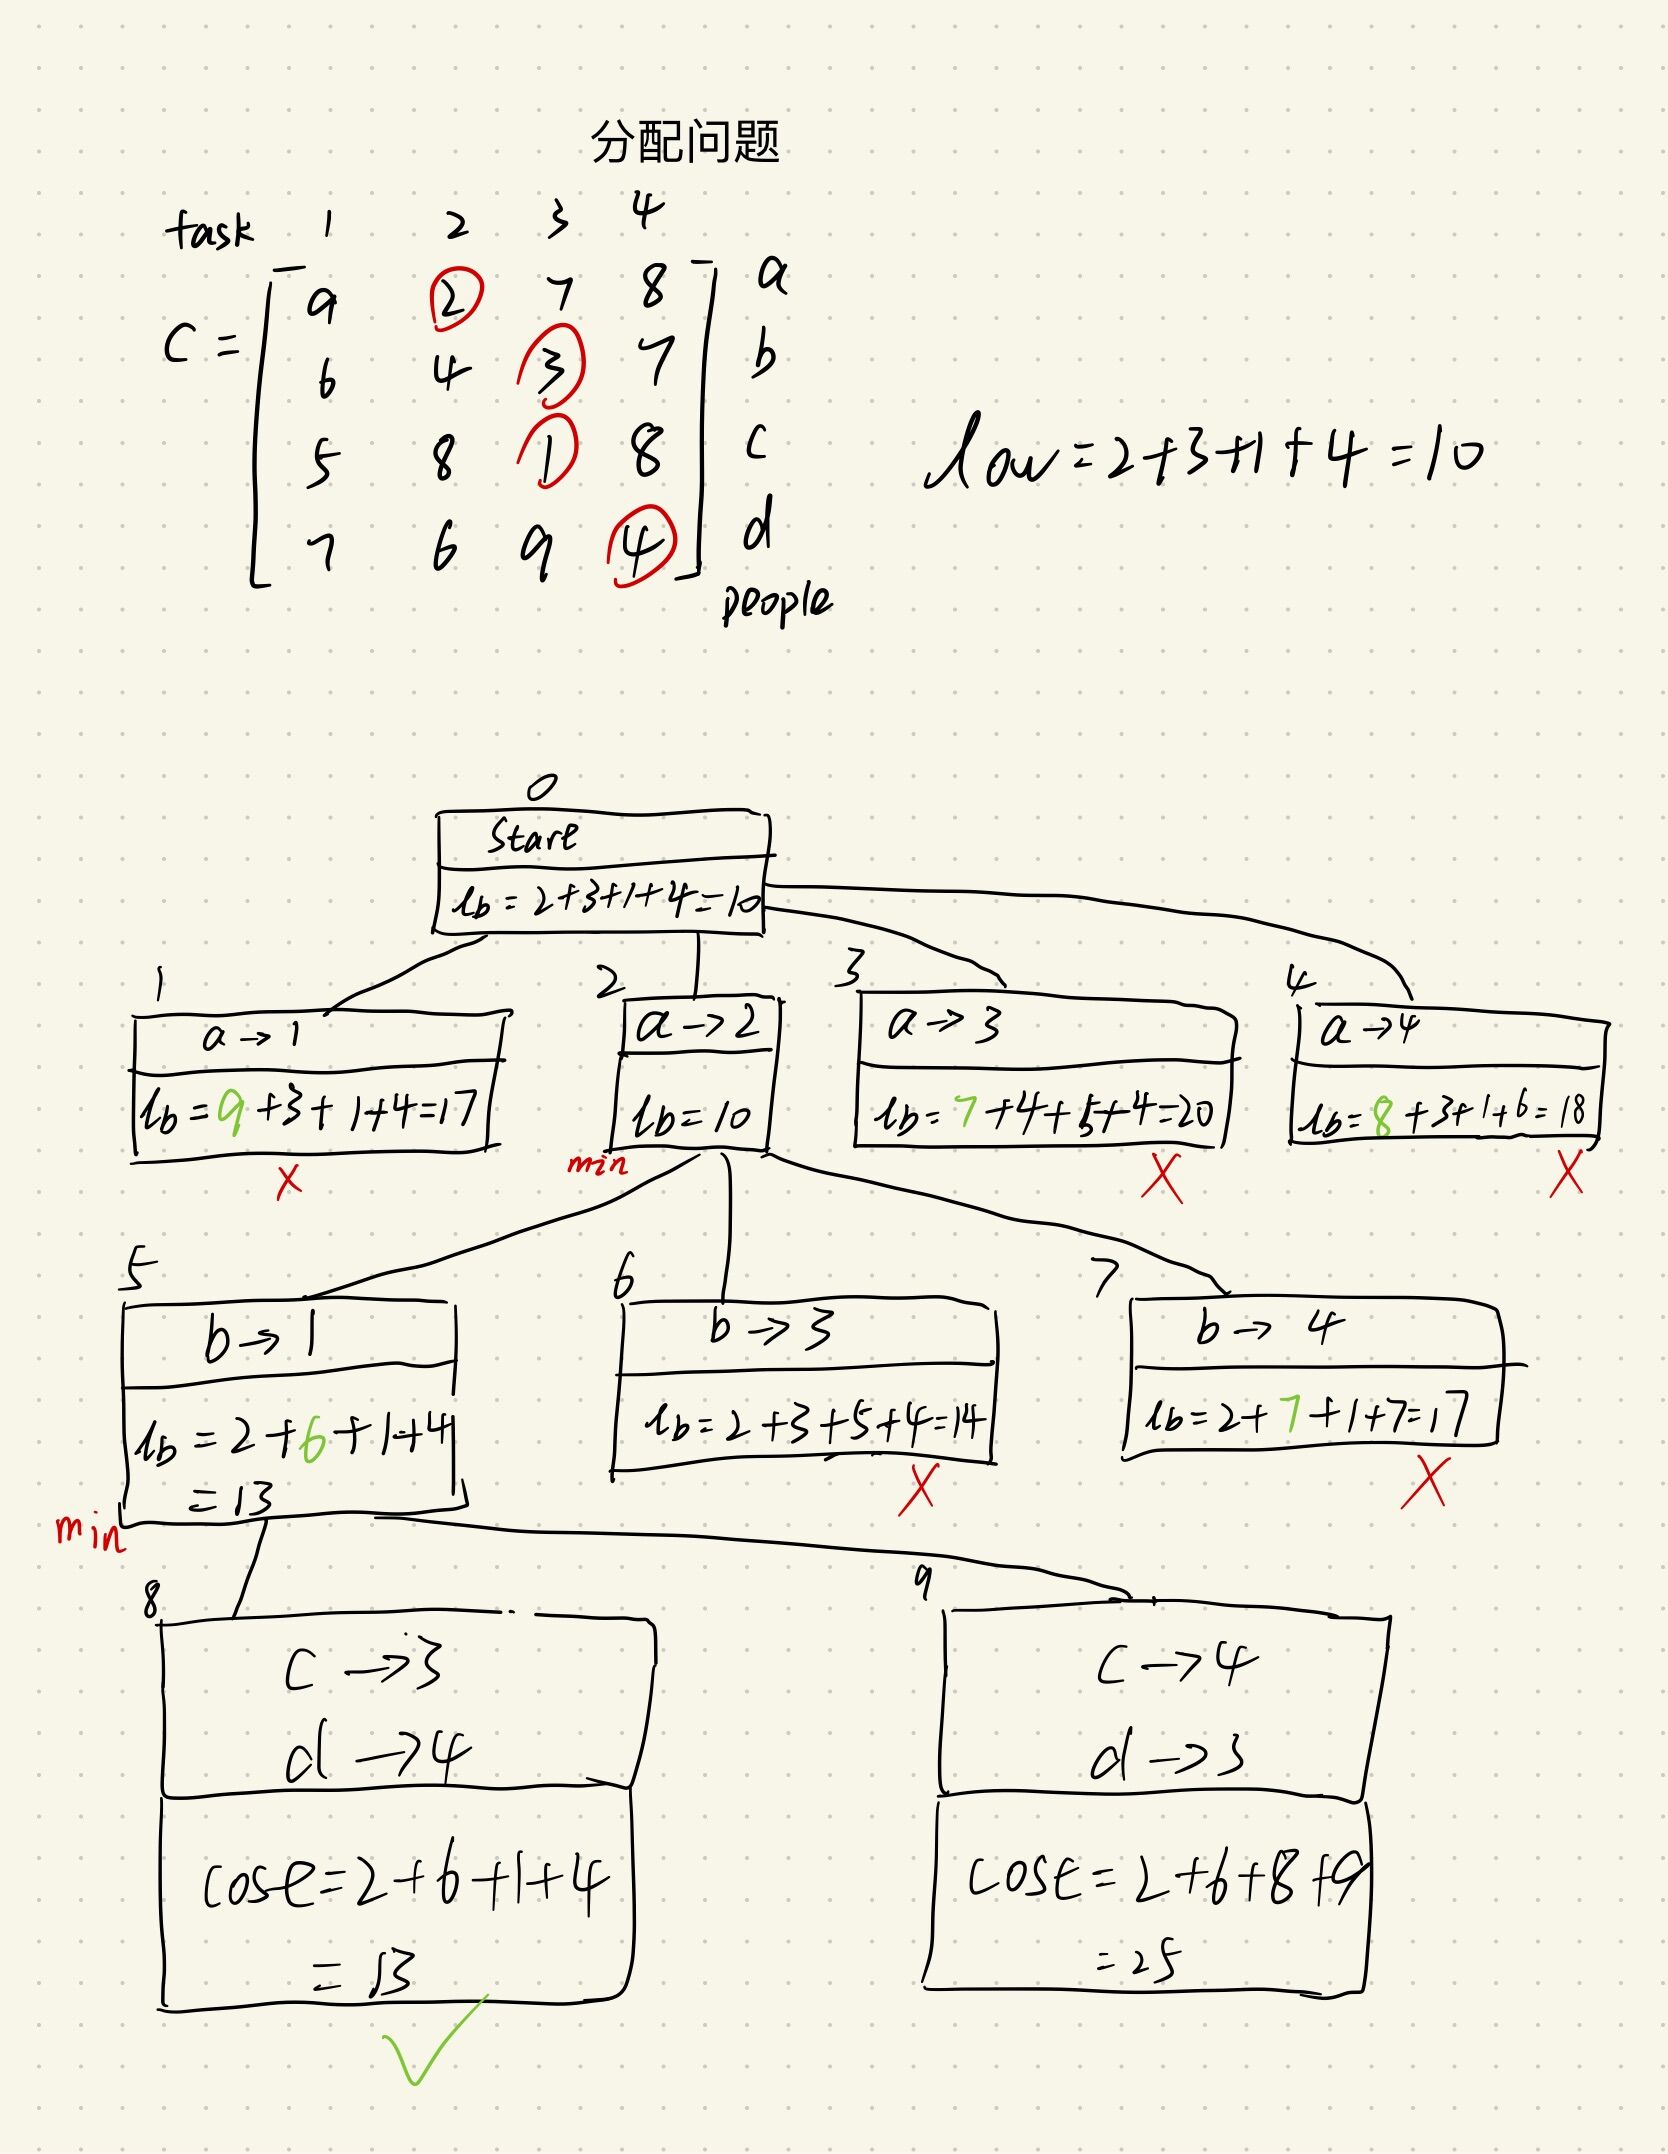 分配问题
task 1 2 3 4
C = 9 2 7 8 a
6 4 3 7 b
5 8 1 8 c
7 6 9 4 d
people
low = 2+3+1+4 = 10
0
Start
lb = 2+3+1+4=10
1
a → 1
lb = 9+3+1+4=17
X
2
a → 2
lb = 10
min
3
a → 3
lb = 7+4+5+4=20
X
4
a → 4
lb = 8+3+1+6=18
X
5
b → 1
lb = 2+6+1+4
= 13
min
6
b → 3
lb = 2+3+5+4=14
X
7
b → 4
lb = 2+7+1+7=17
X
8
c → 3
d → 4
cost = 2+6+1+4
= 13
9
c → 4
d → 3
cost = 2+6+8+9
= 25